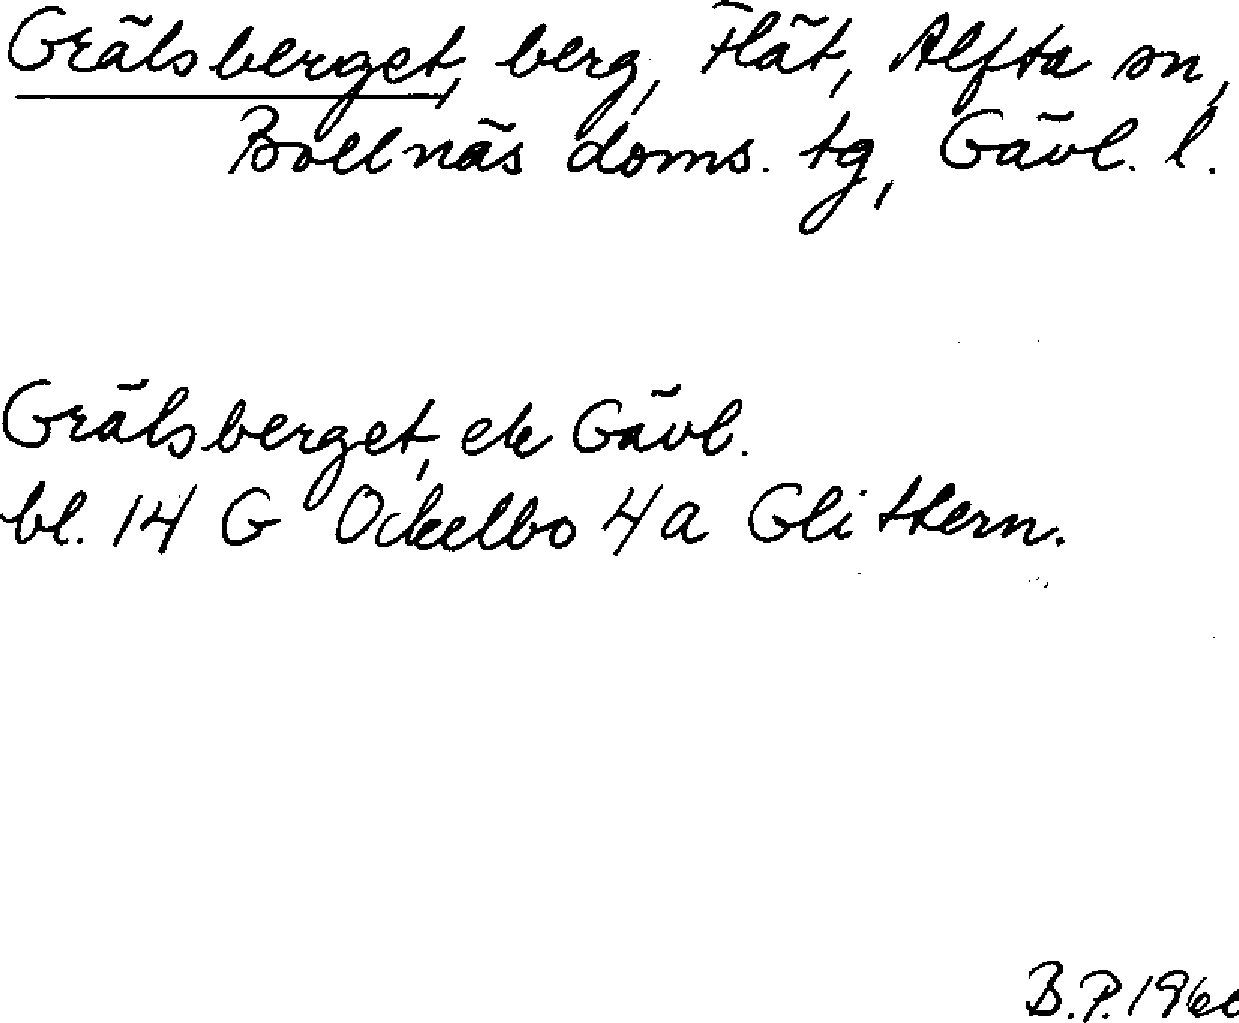 Grälsberget, berg, Flät, Alfta sn,
Bollnäs doms. tg, Gävl. l.
Grälsberget, ek Gävl.
bl. 14 G Ockelbo 4a Glittern.
B.P.